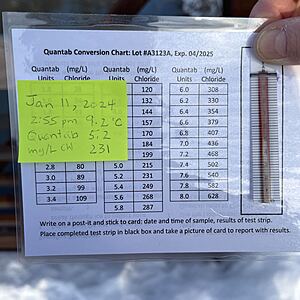 Quantab Conversion Chart: Lot #A3123A, Exp. 04/2025
Quantab (mg/L) Quantab (mg/L) Quantab (mg/L)
Units Chloride Units Chloride Units Chloride
120 6.0 308
132 6.2 330
144 6.4 354
157 6.6 379
170 6.8 407
184 7.0 436
199 7.2 468
2.8 80 5.0 215 7.4 502
3.0 89 5.2 231 7.6 540
3.2 99 5.4 249 7.8 582
3.4 109 5.6 268 8.0 628
5.8 287
Jan 11, 2024
2:55 pm 9.2 °C
Quantab 5.2
mg/L Cl 231
Write on a post-it and stick to card: date and time of sample, results of test strip.
Place completed test strip in black box and take a picture of card to report with results.